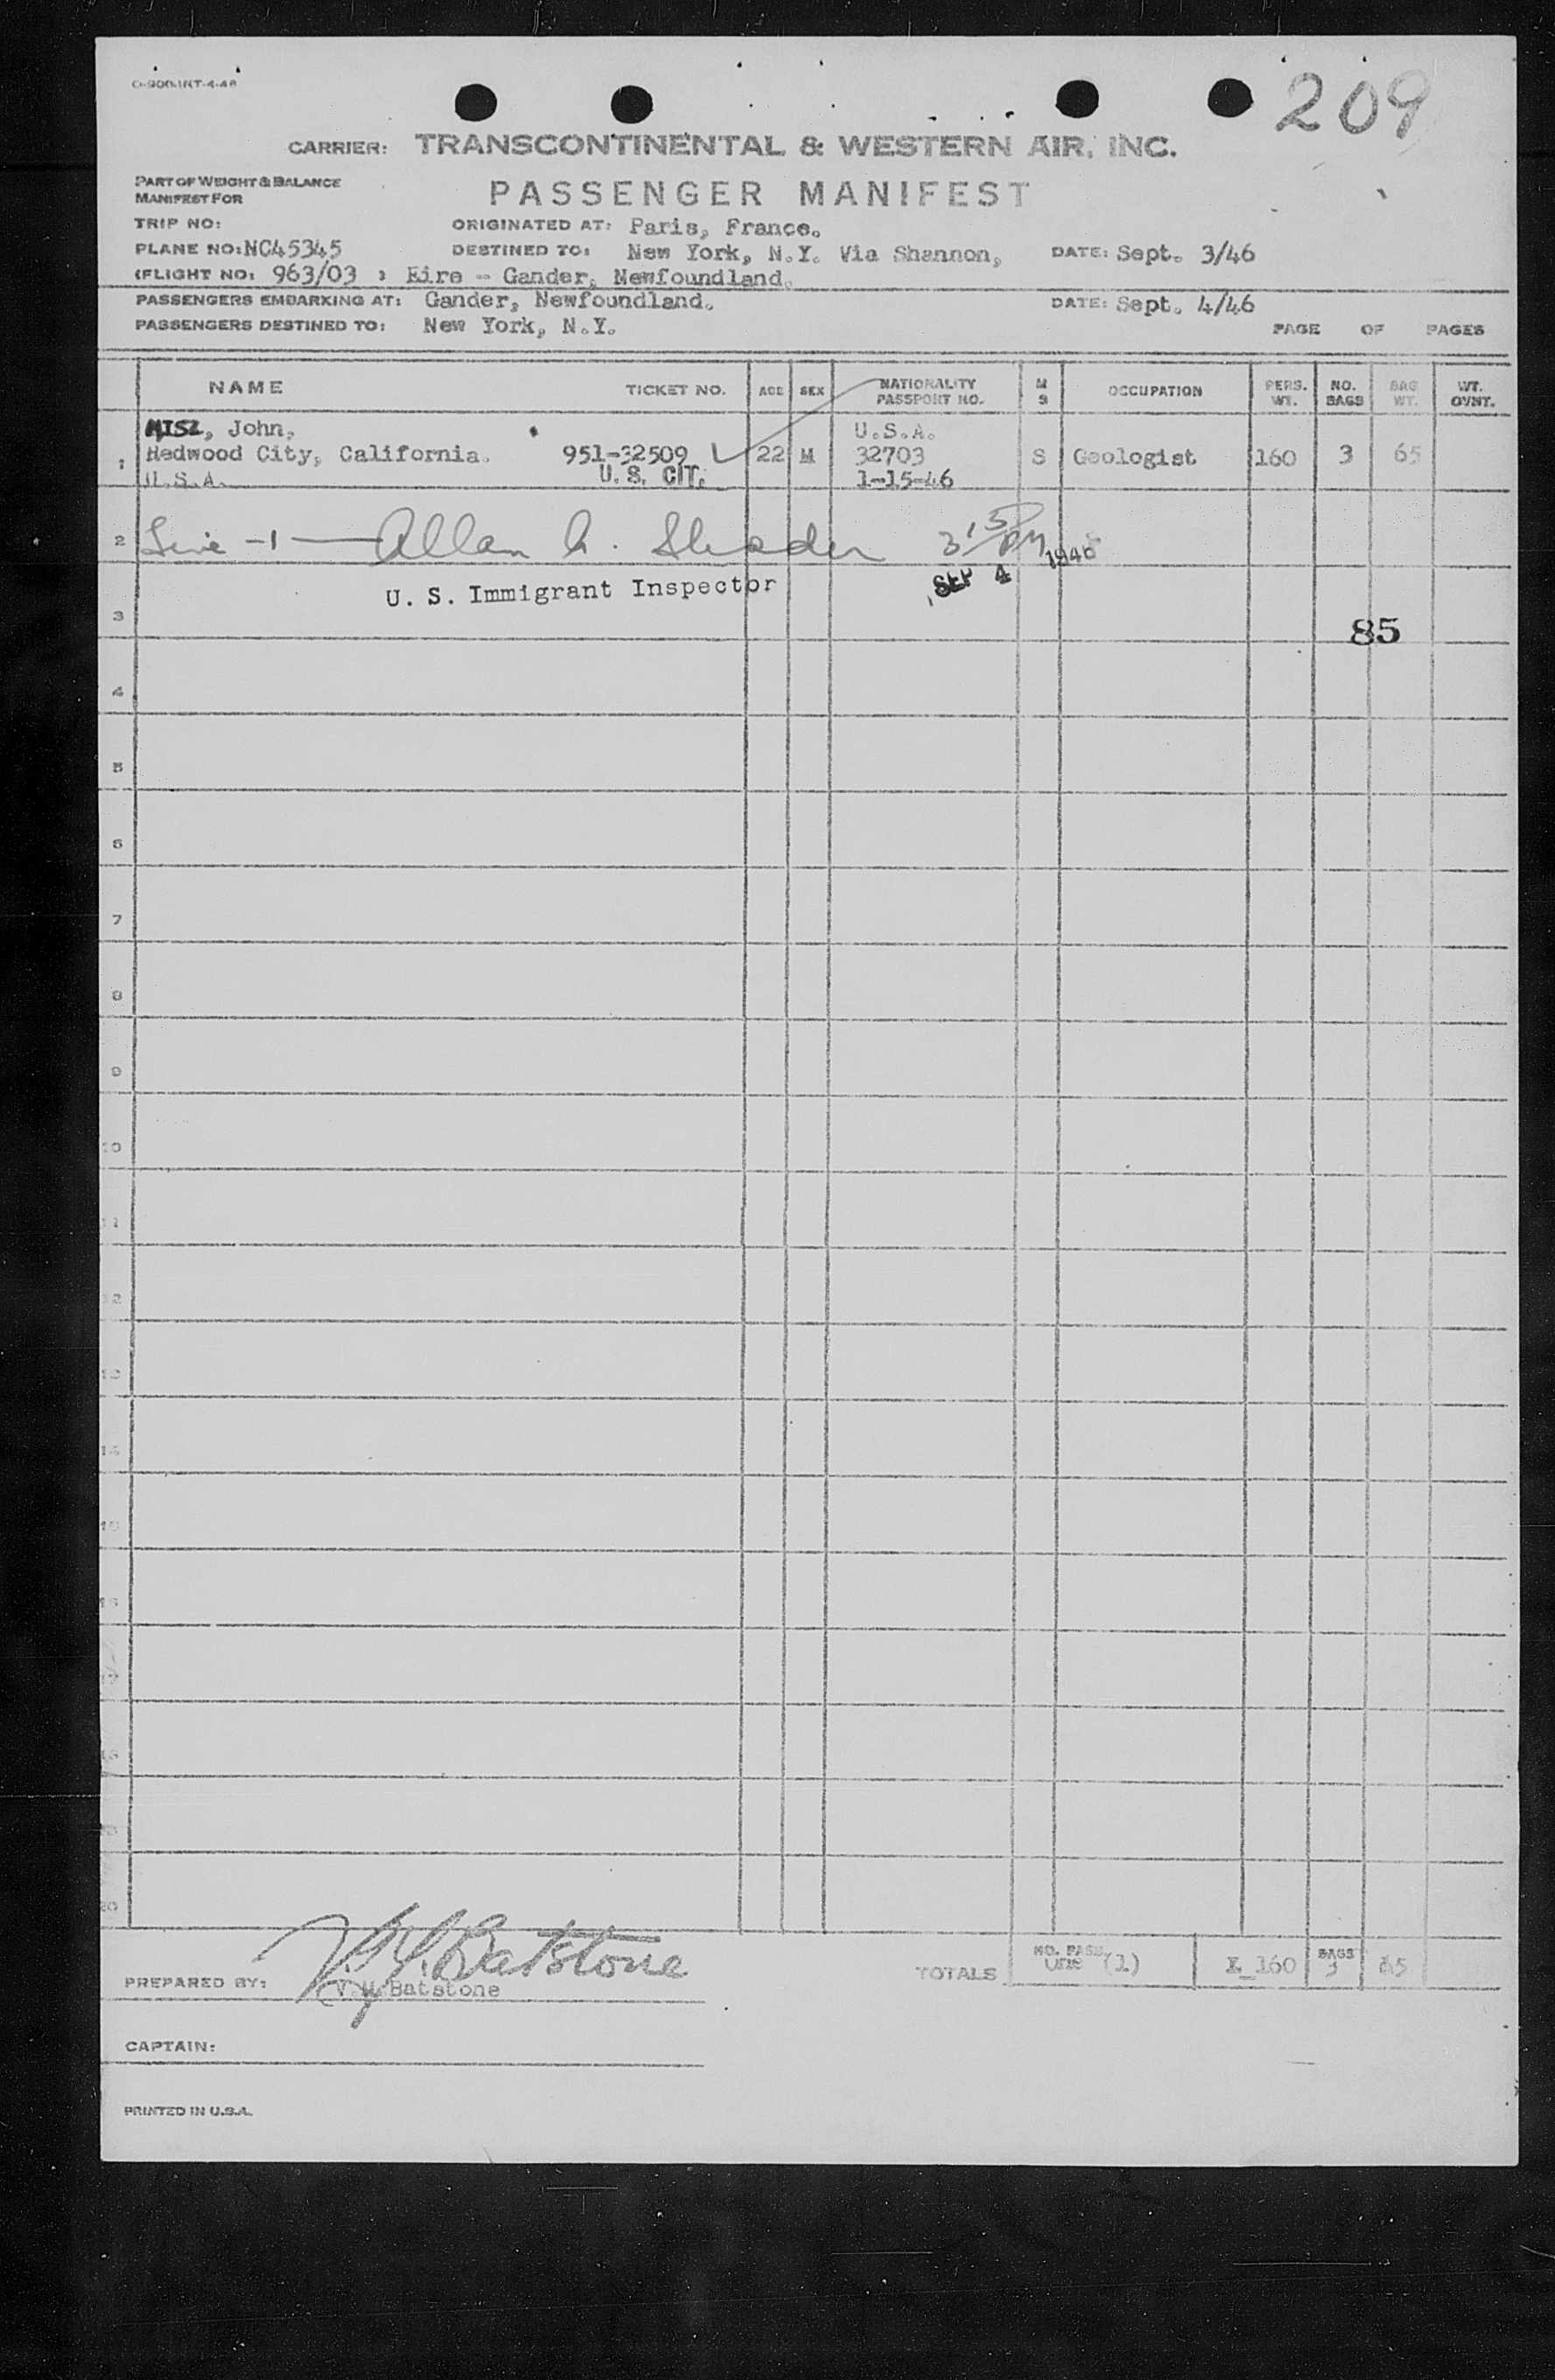 O-900-INT-4-46
209
CARRIER: TRANSCONTINENTAL & WESTERN AIR, INC.
PART OF WEIGHT & BALANCE
MANIFEST FOR
PASSENGER MANIFEST
TRIP NO:
ORIGINATED AT: Paris, France.
PLANE NO: NC45345
DESTINED TO: New York, N.Y. Via Shannon,
DATE: Sept. 3/46
(FLIGHT NO: 963/03 : Eire - Gander, Newfoundland.
PASSENGERS EMBARKING AT: Gander, Newfoundland.
DATE: Sept. 4/46
PASSENGERS DESTINED TO: New York, N.Y.
PAGE OF PAGES
NAME TICKET NO. AGE SEX NATIONALITY PASSPORT NO. M S OCCUPATION PERS. WT. NO. BAGS BAG WT. WT. OVNT.
MISZ, John, U.S.A.
1 Redwood City, California. 951-32509 22 M 32703 S Geologist 160 3 65
U.S.A. U. S. CIT. 1-15-46
2 Line -1- Allan 3 15 PM
U. S. Immigrant Inspector SEP 4 1946
3
85
4
5
6
7
8
9
10
11
12
13
14
15
16
17
18
19
20
V. Y. Batstone
PREPARED BY: V.Y.Batstone
TOTALS NO. PASS. One (1) 160 BAGS 3 65
CAPTAIN:
PRINTED IN U.S.A.